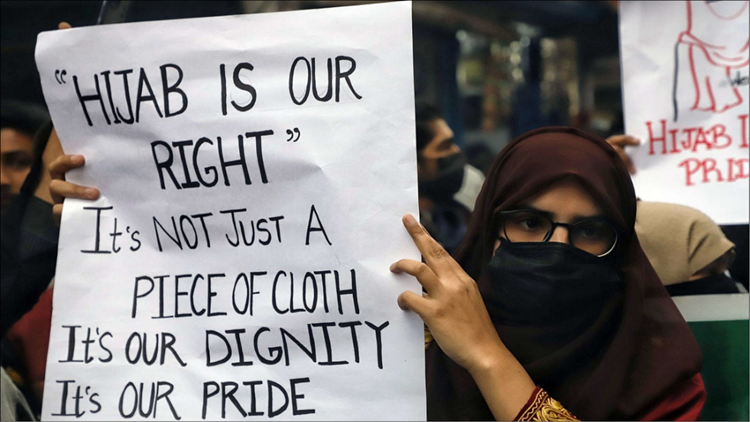 "HIJAB IS OUR
RIGHT"
It's NOT JUST A
PIECE OF CLOTH
It's OUR DIGNITY
It's OUR PRIDE
HIJAB I
PRID